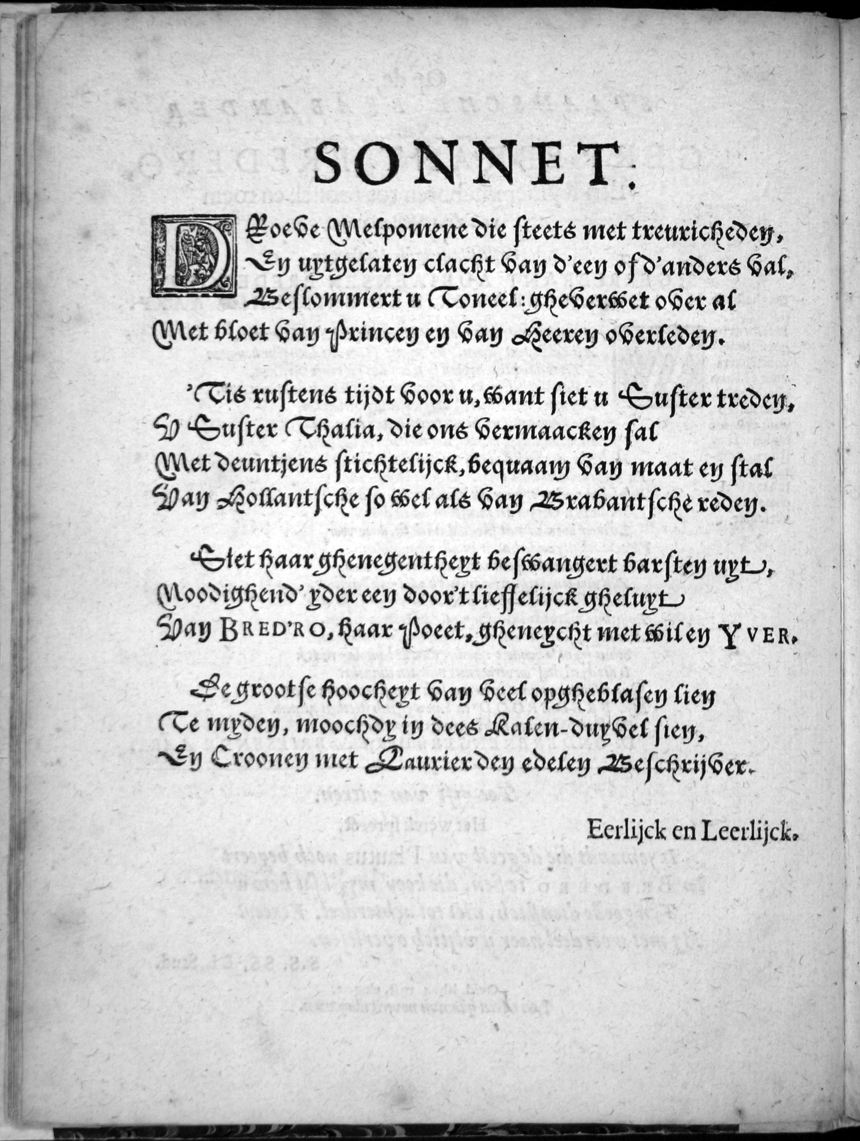 SONNET.
DRoeve Melpomene die steets met treuricheden,
En uytgelaten clacht van d'een of d'anders val,
Beslommert u Toneel: gheverwet over al
Met bloet van Princen en van Heeren overleden.
'Tis rustens tijdt voor u, want siet u Suster treden,
V Suster Thalia, die ons vermaacken sal
Met deuntjens stichtelijck, bequaam van maat en stal
Van Hollantsche so wel als van Brabantsche reden.
Siet haar ghenegentheyt beswangert barsten uyt,
Noodighend' yder een door't lieffelijck gheluyt
Van BRED'RO, haar Poeet, gheneycht met wil en YVER.
De grootse hoocheyt van veel opgheblasen lien
Te myden, moochdy in dees Kalen-duyvel sien,
En Croonen met Laurier den edelen Beschrijver.
Eerlijck en Leerlijck.